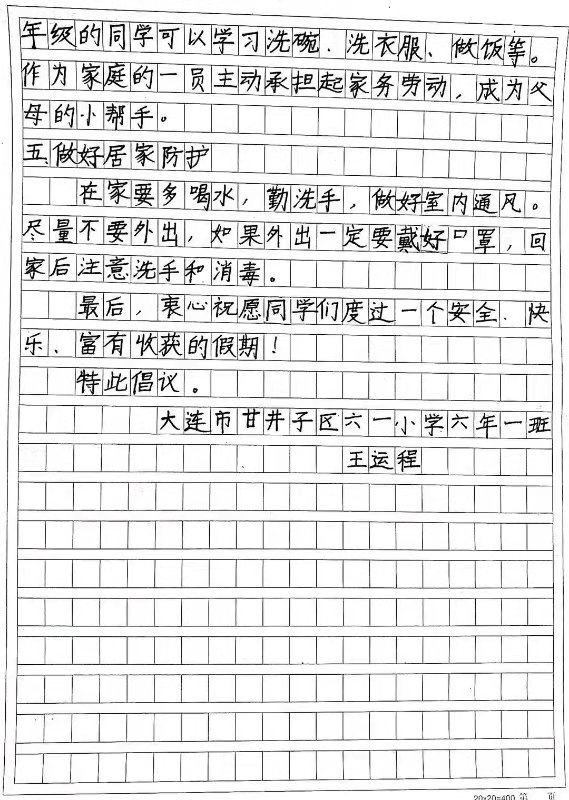 年级的同学可以学习洗碗、洗衣服、做饭等。
作为家庭的一员主动承担起家务劳动，成为父
母的小帮手。
五、做好居家防护
在家要多喝水，勤洗手，做好室内通风。
尽量不要外出，如果外出一定要戴好口罩，回
家后注意洗手和消毒。
最后，衷心祝愿同学们度过一个安全、快
乐、富有收获的假期！
特此倡议。
大连市甘井子区六一小学六年一班
王运程
20×20=400 第 页